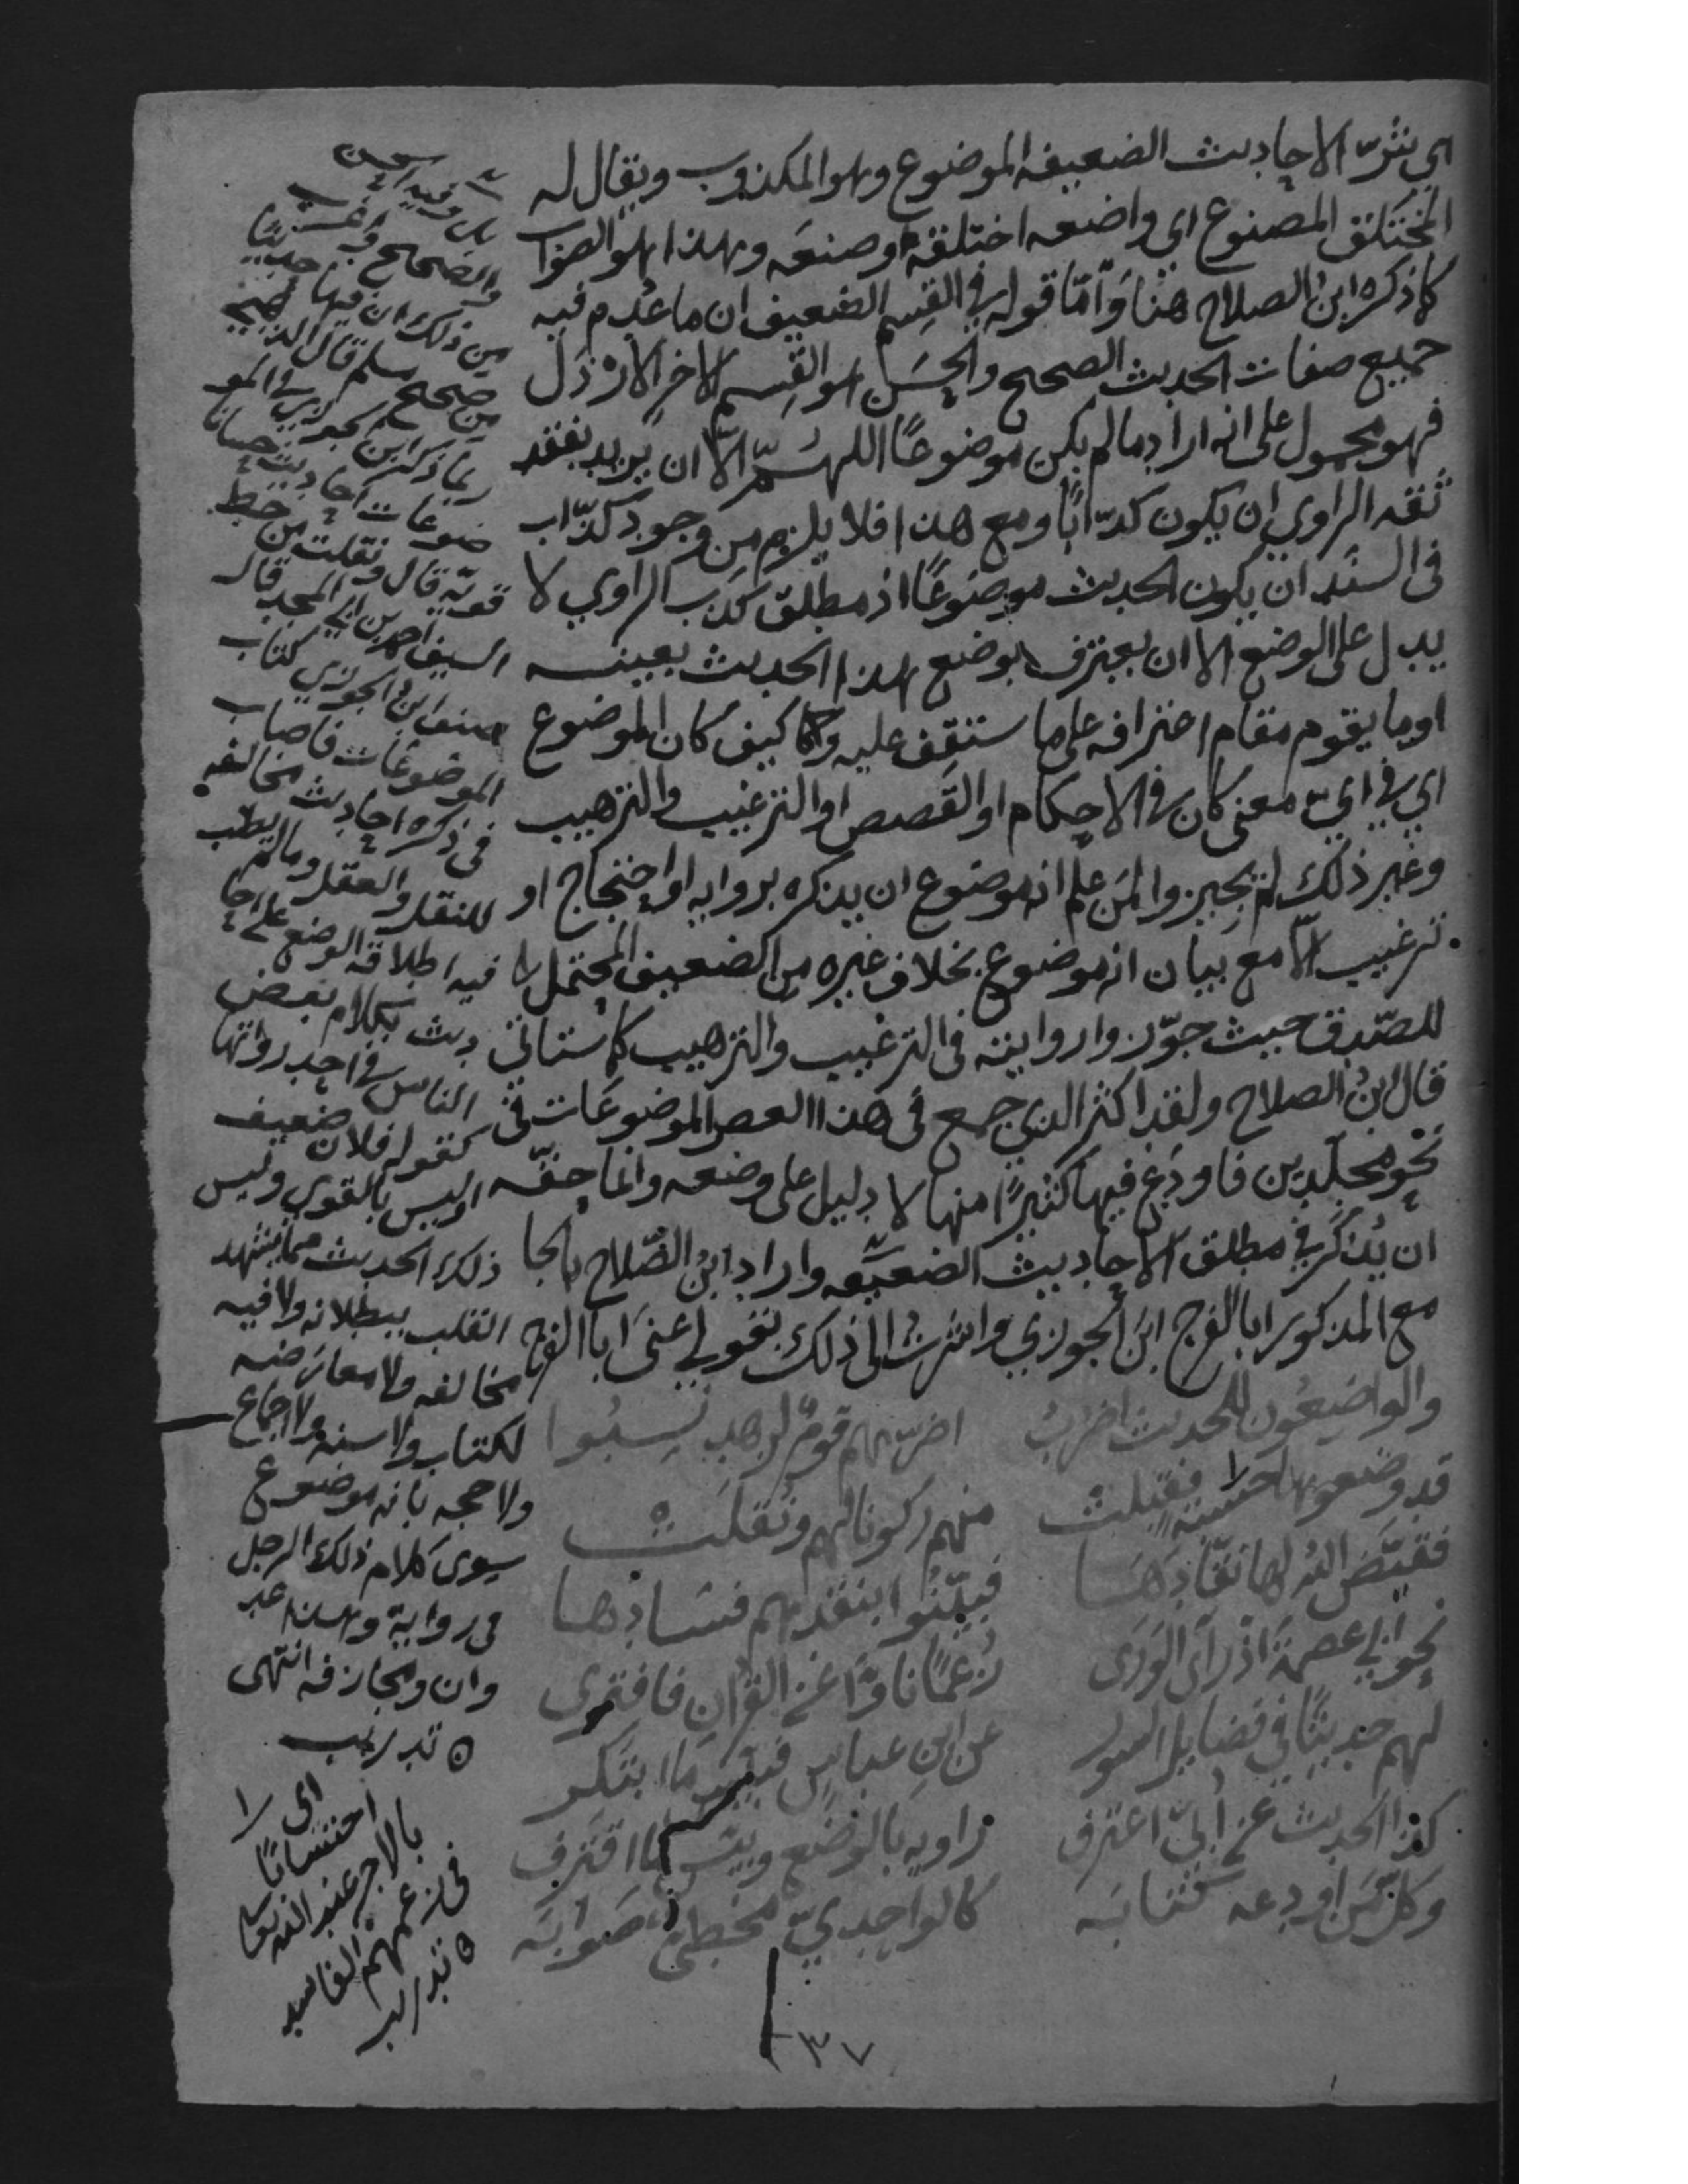 اي شرّ الاحاديث الضعيفه الموضوع وهو المكذوب ويقال له
المختَلَق المصنوع اى واضعه اختلقه وصنعه وهذا هو الصواب
كما ذكره ابن الصلاح هنا وَامّا قوله في القِسم الضعيف ان ما عُدِم فيه
جميع صفات الحديث الصحيح والحسَن هو القِسم الاخر الارذل
فهو محمول على انه اراد ما لم يكن موضوعًا اللهمّ الّا ان يريد بفقد
ثقه الراوي ان يكون كذّابًا ومع هذا فلا يلزم من وجود كذّاب
فى السنَد ان يكون الحديث موضوعًا اذ مطلق كذب الراوي لا
يدل على الوضع الا ان يعترف بوضع هذا الحديث بعينه
او ما يقوم مقام اعترافه على ما ستقِف عليه كيف كان الموضوع
اي في ايّ معنى كان في الاحكام او القَصص او الترغيب والترهيب
وغير ذلك لم يجيزوا لمَن علم انه موضوع ان يذكره بروايه او احتجاج او
ترغيب الّا مع بيان انه موضوع بخلاف غيره من الضعيف المحتمل
للصّدق حيث جوّزوا روايته فى الترغيب والترهيب كما سياتي
قال ابنُ الصلاح ولقد اكثر الذي جمع فى هذا العصر الموضوعَات فى
نحو مجلّدين فاودَع فيها كثيرًا منها لا دليل على وضعه وانما حقّه
ان يُذكر في مطلق الاحاديث الضعيفه واراد ابنُ الصّلاح بالجا
مع المذكور ابا الفرج ابنَ الجوزي واشرتُ الى ذلك بقولي اعنى ابا الفرج
والواضِعُون للحديث اضرُبُ اضرّهم قومٌ لزهد نُسِبُوا
قد وضعوها حِسْبةً فقُبِلتْ منهم ركونا لهم ونُقلَتْ
فقيّضَ اللهُ لها نقّادَهَا فبيّنُوا بنقدهم فسَادها
نحو ابي عصمةَ اذ رَأَى الوَرَى زَعْمًا نَاوْا عَن القُرانِ فافترى
لهم حديثًا في فضايل السور عن ابنِ عباسٍ فبئس ما ابتكر
كذا الحديث عن اُبيّ اعترف راويه بالوضع وبئس ما اقترف
وكلّ مَن اودعه كتابَه كالواحديّ مخطئٌ صَوابَه
٣٧
والصحيح
من ذلك ان فيها حديثًا
من صحيح مسلم قال الذهبي
ربما ذكر ابن الجوزي في المو
ضوعات احاديث حسانا
قويّه قال ونقلت من خط
السيف احمد بن ابي المجد قال
صنف ابن الجوزي كتاب
الموضوعات فاصاب
فى ذكره احاديث مخالفه
للنقل والعقل ومما لم يصب
فيه اطلاقه الوضع على احا
ديث بكلام بعض
الناس في احد رواتها
كقوله فلان ضعيف
او ليس بالقوي وليس
ذلك الحديث مما يشهد
القلب ببطلانه ولا فيه
مخالفه ولا معارضه
لكتاب ولا سنه ولا اجماع
ولا حجه بانه موضوع
سوى كلام ذلك الرجل
فى روايه وهذا عد
وان ومجازفه انتهى
تدريب
اى
احتسابًا
بالاجر عند الله
فى زعمهم الفاسد
تدريب